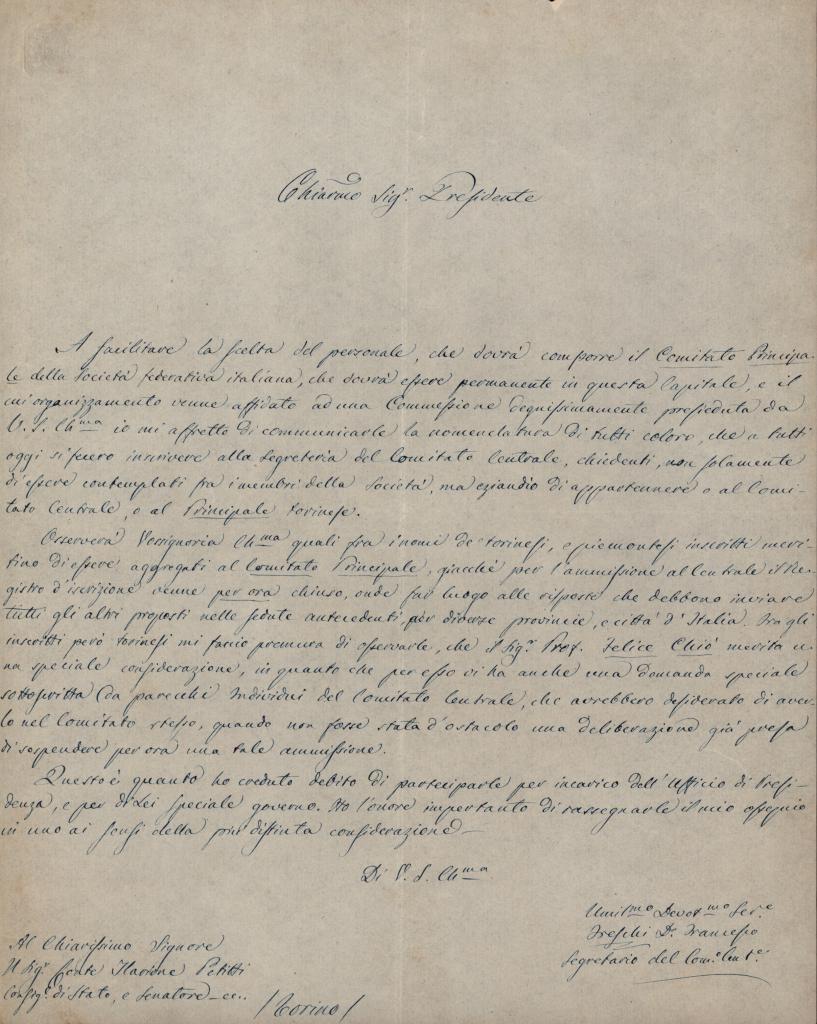 Chiarmo Sigr. Presidente
A facilitare la scelta del personale, che dovrà comporre il Comitato Principa-
le della Società federativa italiana, che dovrà essere permanente in questa Capitale, e il
cui organizzamento venne affidato ad una Commessione degnissimamente presieduta da
V. S. Chma io mi affretto di communicarle la nomenclatura di tutti coloro, che a tutti
oggi si fecero inscrivere alla Segreteria del Comitato Centrale, chiedenti, non solamente
di essere contemplati fra i membri della Società, ma eziandio di appartennere o al Comi-
tato Centrale, o al Principale torinese.
Osserverà Vossignoria Chma quali fra i nomi de' torinesi, e piemontesi inscritti meri-
tino di essere aggregati al Comitato Principale, giacchè per l'ammissione al Centrale il Re-
gistro d'iscrizione venne per ora chiuso, onde far luogo alle risposte che debbono inviare
tutti gli altri proposti nelle sedute antecedenti, per diverse provincie, e città d'Italia. Fra gli
inscritti però torinesi mi faccio premura di osservarle, che il Sigr. Prof. Felice Chiò merita u-
na speciale considerazione, in quanto che per esso vi ha anche una domanda speciale
sottoscritta da parecchi Individui del Comitato Centrale, che avrebbero desiderato di aver-
lo nel Comitato stesso, quando non fosse stata d'ostacolo una deliberazione già presa
di sospendere per ora una tale ammissione.
Questo è quanto ho creduto debito di parteciparle per incarico dell'Ufficio di Presi-
denza, e per di Lei speciale governo. Ho l'onore impertanto di rassegnarle il mio ossequio
in uno ai sensi della più distinta considerazione
Di V. S. Chma
Umilmo Devotmo Serve
Freschi Dr. Francesco
Segretario del Com. Cente.
Al Chiarissimo Signore
Il Sigr. Conte Ilarione Petitti
Consigr. di Stato, e Senatore ec..
/Torino/